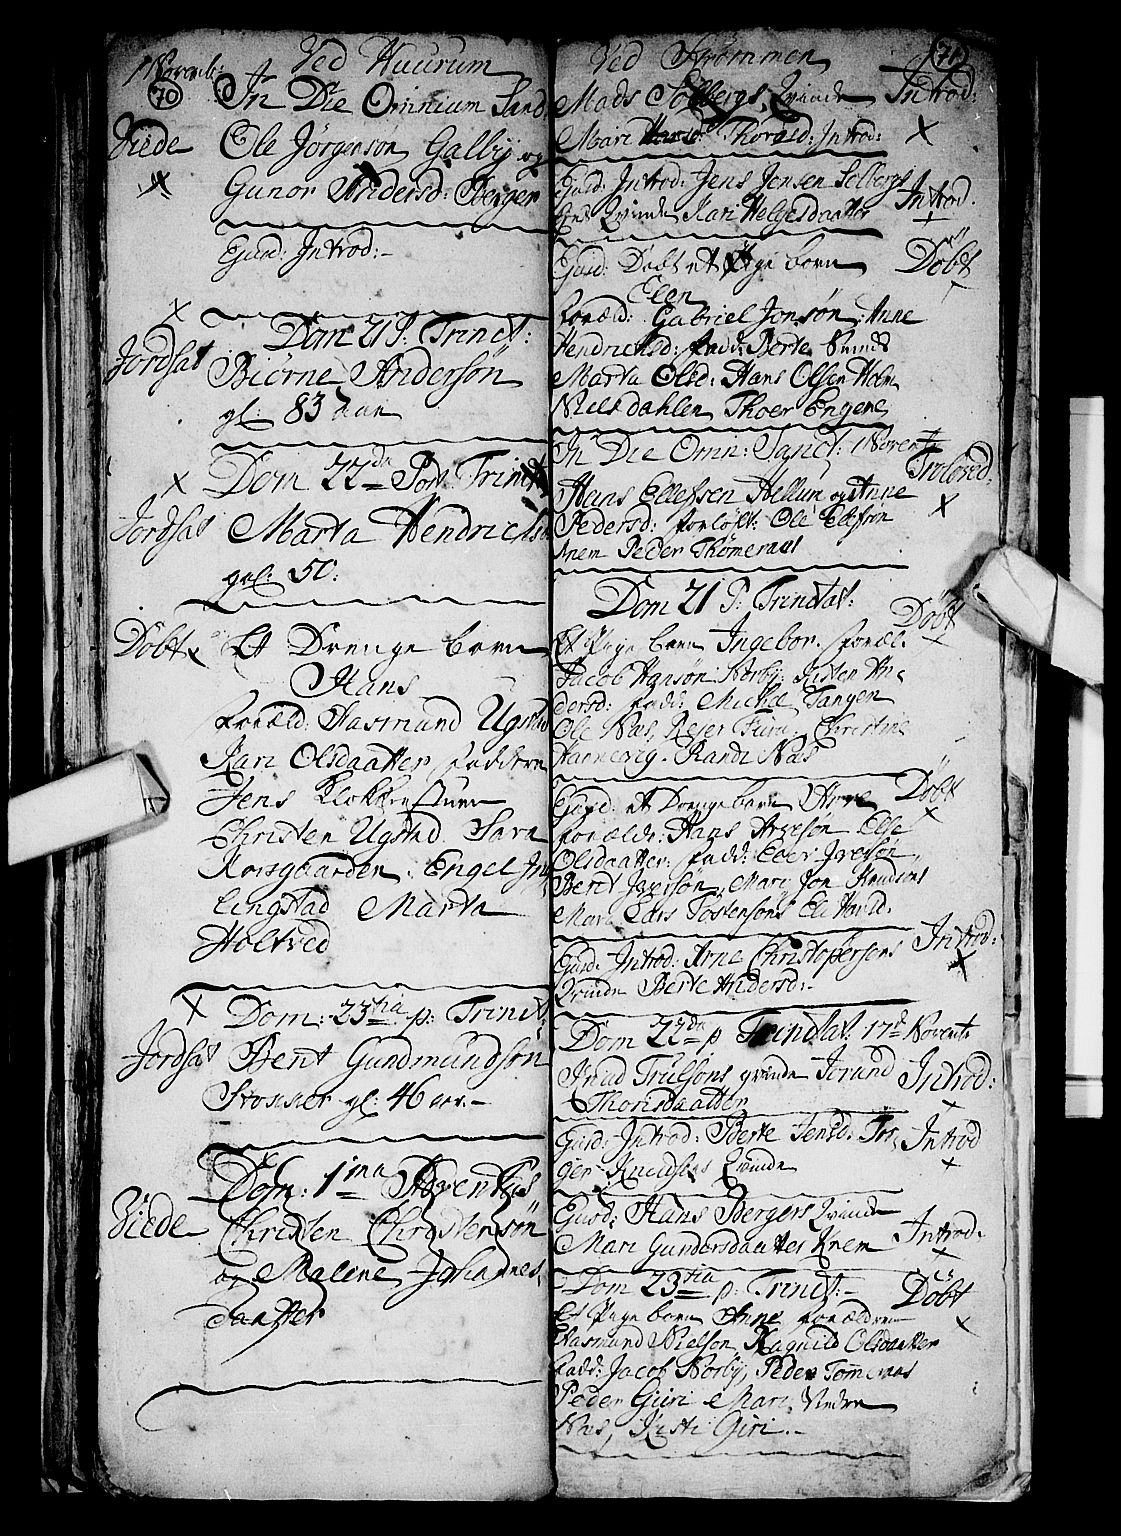 1 Novemb:
70
Ved Huurum
In Die Omnium Sand
Viede
Ole Jörgensön Galby og
Gunor Andersd: Berger
Ejusd: Introd:-
Dom 21 P: Trinit:
Jordsat
Biörne Andersön
gl: 83 aar
Dom 22da Post Trinit
Jordsat
Marta Hendrichsd
gl: 50:
Döbt
Et Drenge barn
Hans
foræld: Aasmund Ugstad
Kari Olsdaatter fadderne
Jens Klokkerstuen
Christen Ugstad Sara
Korsgaarden. Engel
Lingstad Marta
Holtved
Dom: 23tia p: Trinit
Jordsat
Bent Gundmundsön
gl: 46 aar.-
Dom: 1ma Adventus
Viede
Christen Christensön
og Malene Johannes
daatter
71
Ved Strömmen
Mads Solbergs Qvinde
Introd:
Mari Thorald: Introd:
Ejusd: Introd: Jens Jensen Solbergs
Introd.
Qvinde Kari Helgesdaatter
Ejusd: Döbt et Pige barn
Döbt
Elen
foræld: Gabriel Jonsön, Anne
Hendrichsd: fadd: Berte
Marta Olsd: Hans Olsen Holm
Niels Dahlen Thoer Engene
In Die Omn: Sanct: 1 Novembr
Trolovd.
Hans Ellefsen Hellum og Anne
Pedersd: forlöft: Ole Ellefsön
Knem Peder Thömeraas
Dom 21 P: Trinitat:
Döbt
Et Pige barn Ingebor. foræl:
Jacob Hansön Norby: Kisten An
dersd: fadd: Michel Tangen
Ole Nas, Reier Furu, Christine
Hannevig. Randi Nas
Ejusd: et Drenge barn
Döbt
foræld: Hans Arvesön Else
Olsdaatter: fadd: Iver Iversön,
Bent Iversön, Mari Jon Knudsens
Mari Lars Tostensöns
Introd:
Ejusd: Introd: Arne Christophersens
Qvinde Berte Andersd:-
Dom 22da p Trinitat: 17d Novembr
Knud Trulsöns qvinde Jorund
Introd:
Thorisdaatter
Ejusd: Introd: Berte Jensd: Tor
Introd
ger Knudsöns Qvinde
Ejusd: Hans Bergers Qvinde
Mari Gundersdaatter Knem
Introd.
Dom 23tia p: Trinit:-
Döbt
Et Pige barn Anne forældrene
Aasmund Nielsön Ragnild Olsdaatter
fadd: Jacob Norby, Peder Tömeraas
Peder Giiri Mari Vindrn
Nas, Kisti Giri.-